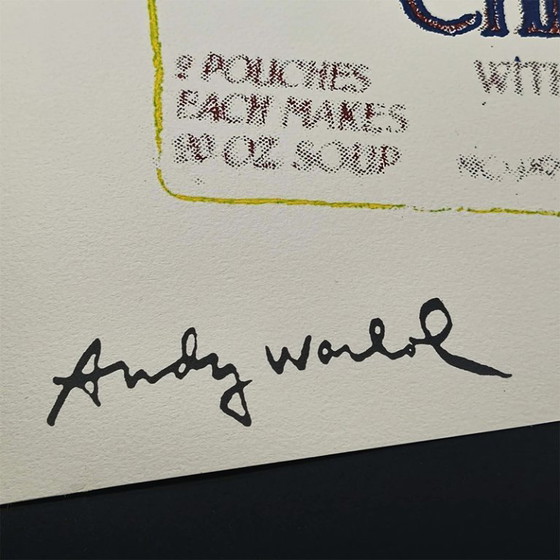 2 POUCHES
EACH MAKES
20 OZ. SOUP
WITH
Andy Warhol